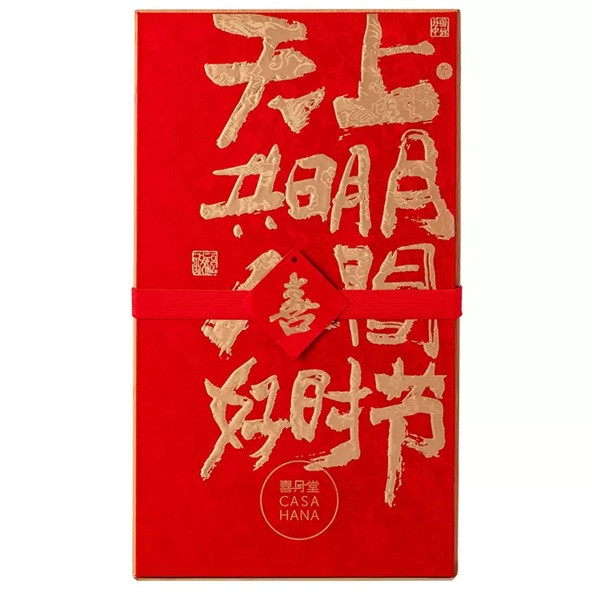 天上
共明月
人間
喜
好时节
喜月堂
CASA
HANA